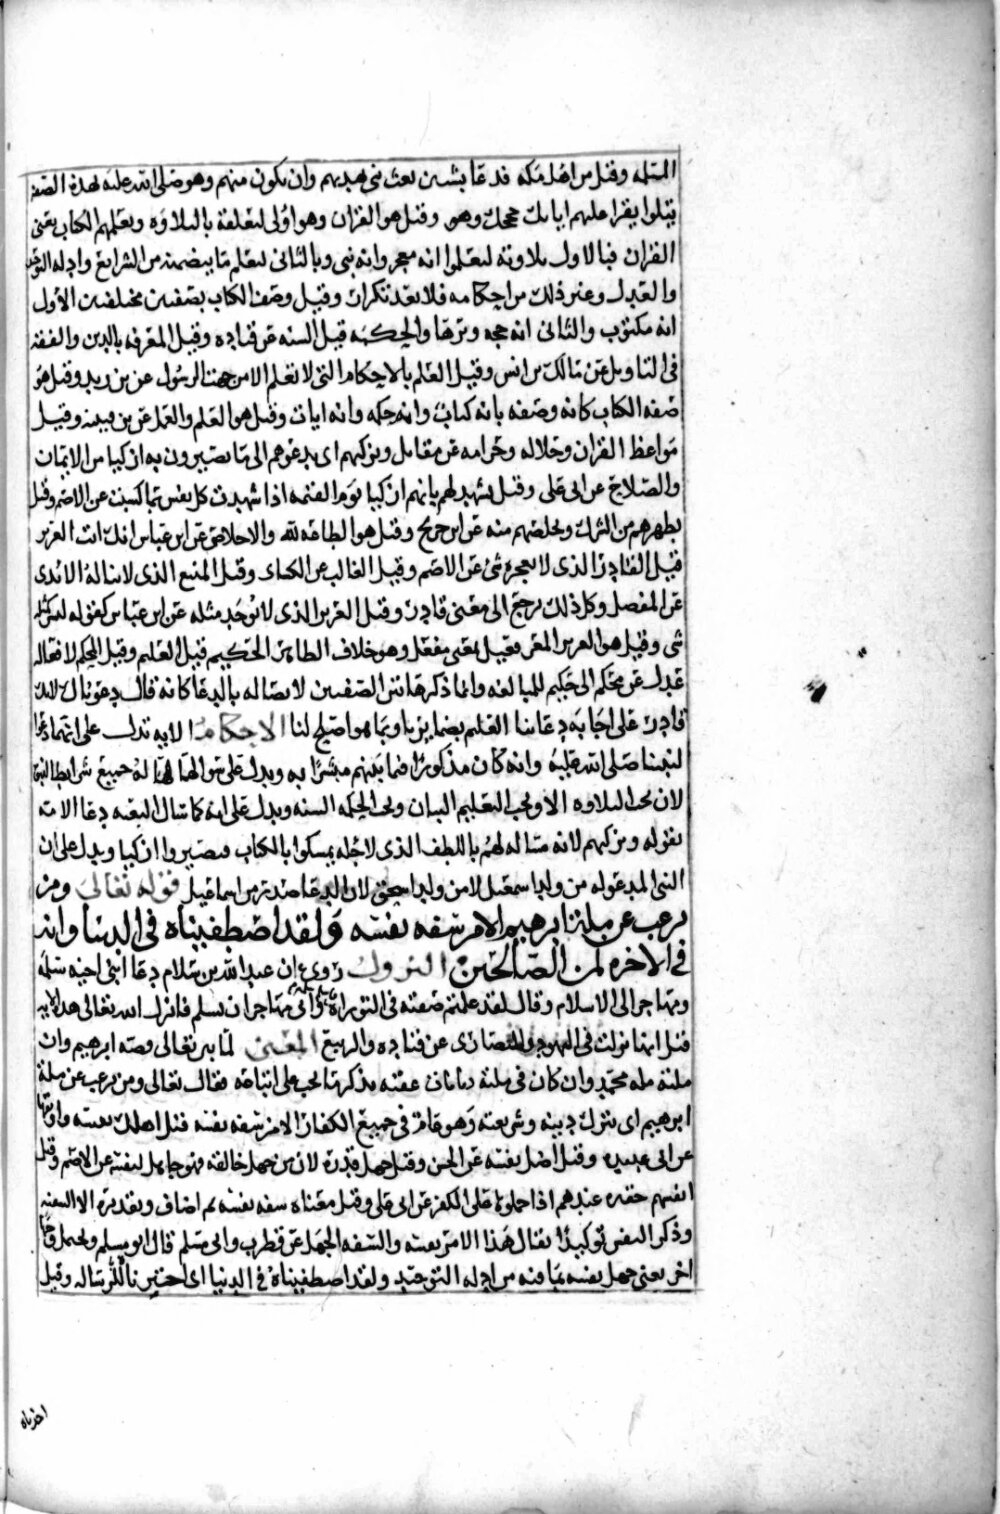 المسلمه وقيل من اهل مكه قد عا بشيئين بعث نبى هديهم وان يكون منهم وهو صلى الله عليه لهذه الصفه
يتلوا يقرا عليهم اياتك حججك وهو وقيل هو القران وهو اولى لتعلقه بالتلاوه ويعلمهم الكتاب يعنى
القران فبالاول تلاوته ليعلموا انه معجز وانه نبى وبالثانى ليعلم ما يتضمنه من الشرايع وادله التوحيد
والعدل وغير ذلك من احكامه فلا يعد تكرارا وقيل وصف الكتاب بصفتين مختلفتين الاول
انه مكتوب والثانى انه حجه وبرها والحكمه قيل السنه عن قتاده وقيل المعرفه بالدين والفقه
فى التاويل عن مالك بن انس وقيل العلم بالاحكام التى لا تعلم الا من جهت الرسول عن بن زيد وقيل هو
صفه الكتاب كانه وصفه بانه كتاب وانه حكمه وانه ايات وقيل هو العلم والعمل عن بن قتيبه وقيل
مواعظ القران وحلاله وحرامه عن مقاتل ويزكيهم اى يدعوهم الى ما يصيرون به ازكيا من الايمان
والصلاح عن ابى على وقيل يشهد لهم بانهم ازكيا يوم القيمه اذا شهدت كل نفس بما كسبت عن الاصم وقيل
يطهرهم من الشرك ويخلصهم منه عن ابن جريج وقيل هو الطاعه لله والاخلاص عن ابن عباس انك انت العزيز
قيل القادر الذى لا يعجزه شئ عن الاصم وقيل الغالب عن الكسائى وقيل المنيع الذى لا يناله الايدى
عن المفضل وكل ذلك يرجع الى معنى قادر وقيل العزيز الذى لا يوجد مثله عن ابن عباس كقوله ليس كمثله
شى وقيل هو العزيز المعز فعيل بمعنى مفعل وهو خلاف الظاهر الحكيم قيل العليم وقيل المحكم لافعاله
عدل عن محكم الى حكيم للمبالغه وانما ذكر هاتين الصفتين لاتصاله بالدعا كانه قال دعوناك لانك
قادر على اجابه دعاينا العليم بضمايرنا وبما هو اصلح لنا الاحكام الايه تدل على انهما دعوا
لنبينا صلى الله عليه وانه كان مذكورا فيما بينهم مبشرا به ويدل على له جميع شرايط النبوه
لان تحت التلاوه الا وتحت التعليم البيان وتحت الحكمه السنه ويدل على انه كما سال البعثه دعا الامه
بقوله ويزكيهم لانه سال لهم باللطف الذى لاجله يمسكوا بالكتاب فيصيروا ازكيا ويدل على ان
النبى المدعو له من ولد اسمعيل لا من ولد اسحق لان الدعا صدر من اسماعيل قوله تعالى ومن
يرغب عن ملة ابرهيم الا من سفه نفسه ولقد اصطفيناه فى الدنيا وانه
فى الاخره لمن الصالحين النزول روى ان عبد الله بن سلام دعا ابنى اخيه سلمه
ومهاجر الى الاسلام وقال لقد علمتم صفته فى التوراه وابى مهاجر ان يسلم فانزل الله تعالى هذه الايه
قيل انها نزلت فى اليهود والنصارى عن قتاده والربيع المعنى لما بين تعالى قصه ابرهيم وان
ملته مله محمد وان كان فى ملته زيادات عقبه بذكر ما يجب على اتباعه فقال تعالى ومن يرغب عن ملة
ابرهيم اى يترك دينه وشريعته وهو عام فى جميع الكفار الا من سفه نفسه قيل اهلك نفسه واوبقها
عن ابى عبيده وقيل اضل نفسه عن الحسن وقيل جهل قدره لان من جهل خالقه فهو جاهل لنفسه عن الاصم وقيل
انفسهم حقيره عندهم اذا حملوها على الكفر عن ابى على وقيل معناه سفه نفسه ثم اضاف وتقديره الا السفيه
وذكر النفس توكيدا يقال هذا الامر نفسه والسفه الجهل عن قطرب وابى مسلم قال ابو مسلم ويحتمل وجها
اخر يعنى جهل نفسه بما فيه من ادله التوحيد ولقد اصطفيناه فى الدنيا اى اخترناه للرساله وقيل
اخترناه